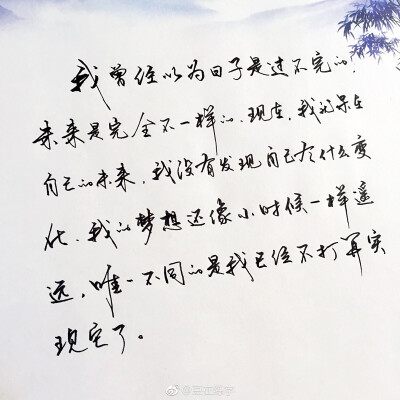 我曾经以为日子是过不完的，
未来是完全不一样的，现在，我就呆在
自己的未来，我没有发现自己有什么变
化，我的梦想还像小时候一样遥
远，唯一不同的是我已经不打算实
现它了。